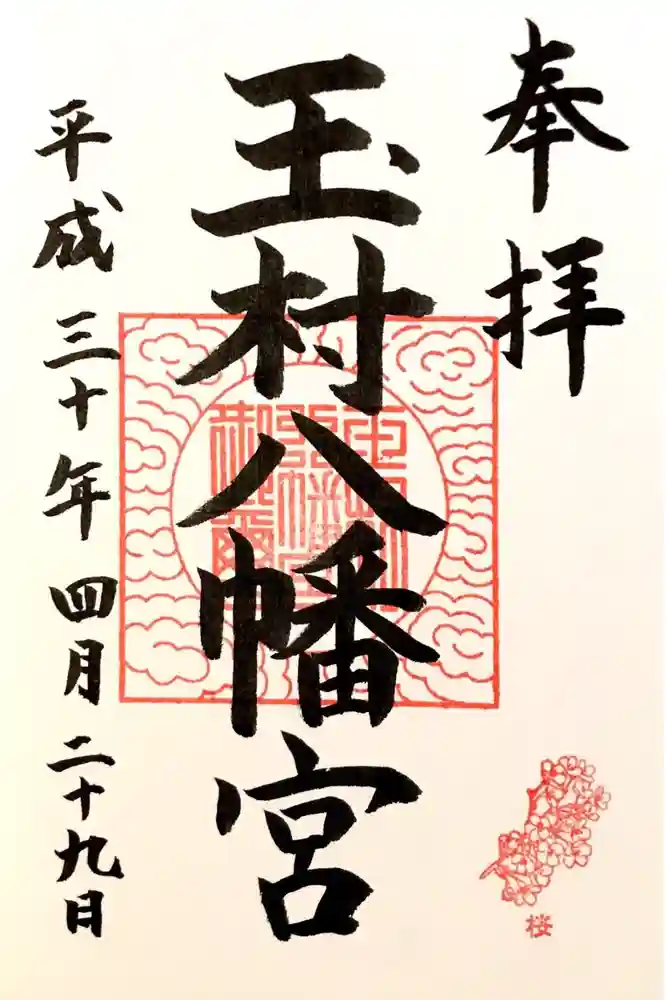 奉拝
玉村八幡宮
平成三十年四月二十九日
桜